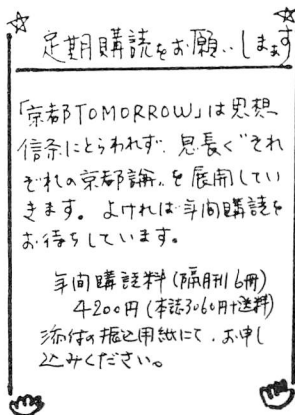 定期購読をお願いします
「京都TOMORROW」は思想
信条にとらわれず、息長く“それ
ぞれの京都論”を展開してい
きます。よければ年間購読を
お待ちしています。
年間購読料(隔月刊6冊)
4200円(本誌3060円+送料)
添付の振込用紙にて、お申し
込みください。